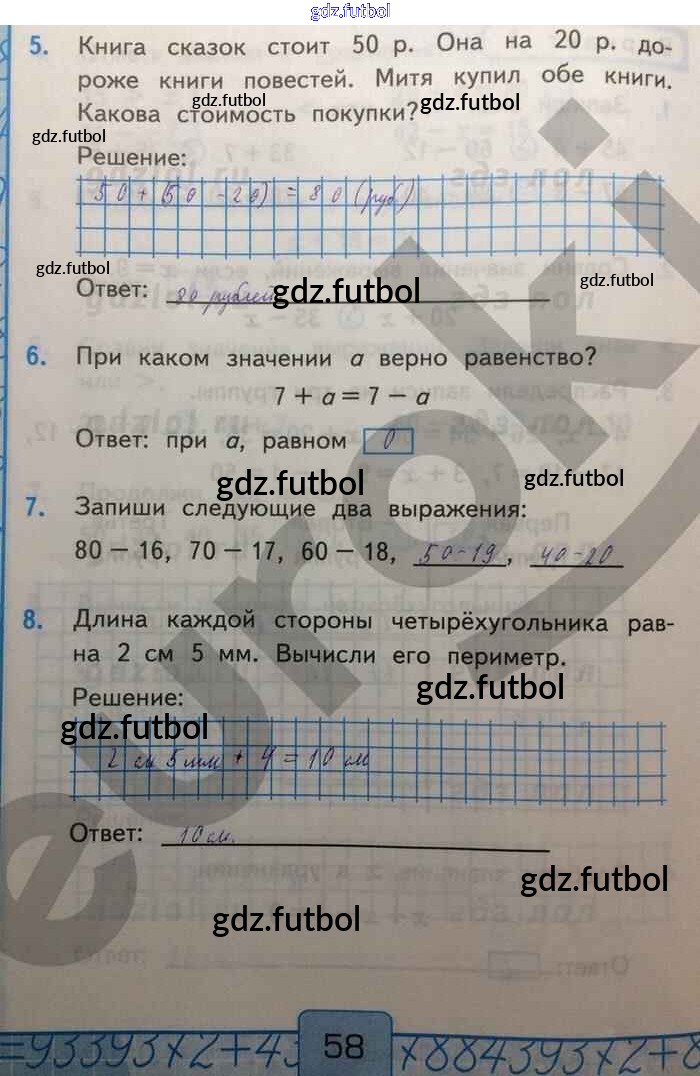 gdz.futbol
5. Книга сказок стоит 50 р. Она на 20 р. до-
роже книги повестей. Митя купил обе книги.
gdz.futbol gdz.futbol
Какова стоимость покупки?
gdz.futbol
Решение:
50+(50-20)=80(руб)
gdz.futbol gdz.futbol
Ответ: 80 рублей
gdz.futbol
6. При каком значении а верно равенство?
7 + а = 7 − а
Ответ: при а, равном 0
gdz.futbol gdz.futbol
7. Запиши следующие два выражения:
80 − 16, 70 − 17, 60 − 18, 50-19, 40-20
8. Длина каждой стороны четырёхугольника рав-
на 2 см 5 мм. Вычисли его периметр.
gdz.futbol
Решение:
gdz.futbol
2 см 5 мм + 4 = 10 см
Ответ: 10 см.
gdz.futbol
gdz.futbol
=93393x2+43 58 x884393x2+8
euroki